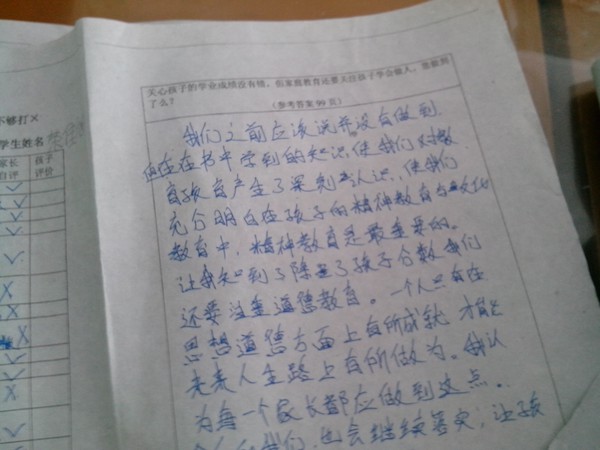 不够打×
学生姓名
家长 孩子
自评 评价
关心孩子的学业成绩没有错，但家庭教育还要关注孩子学会做人，您做到
了么？
（参考答案 99 页）
我们之前应该说并没有做到.
但在在书中学到的知识,使我们对教
育孩子产生了深刻的认识,使我们
充分明白在孩子的精神教育与文化
教育中,精神教育是最重要的。
让我知到了除了孩子分数我们
还要注重道德教育。一个人只有在
思想道德方面上有所成就,才能在
未来人生路上有所做为。我认
为每一个家长都应做到这点。
我们也会继续落实,让孩